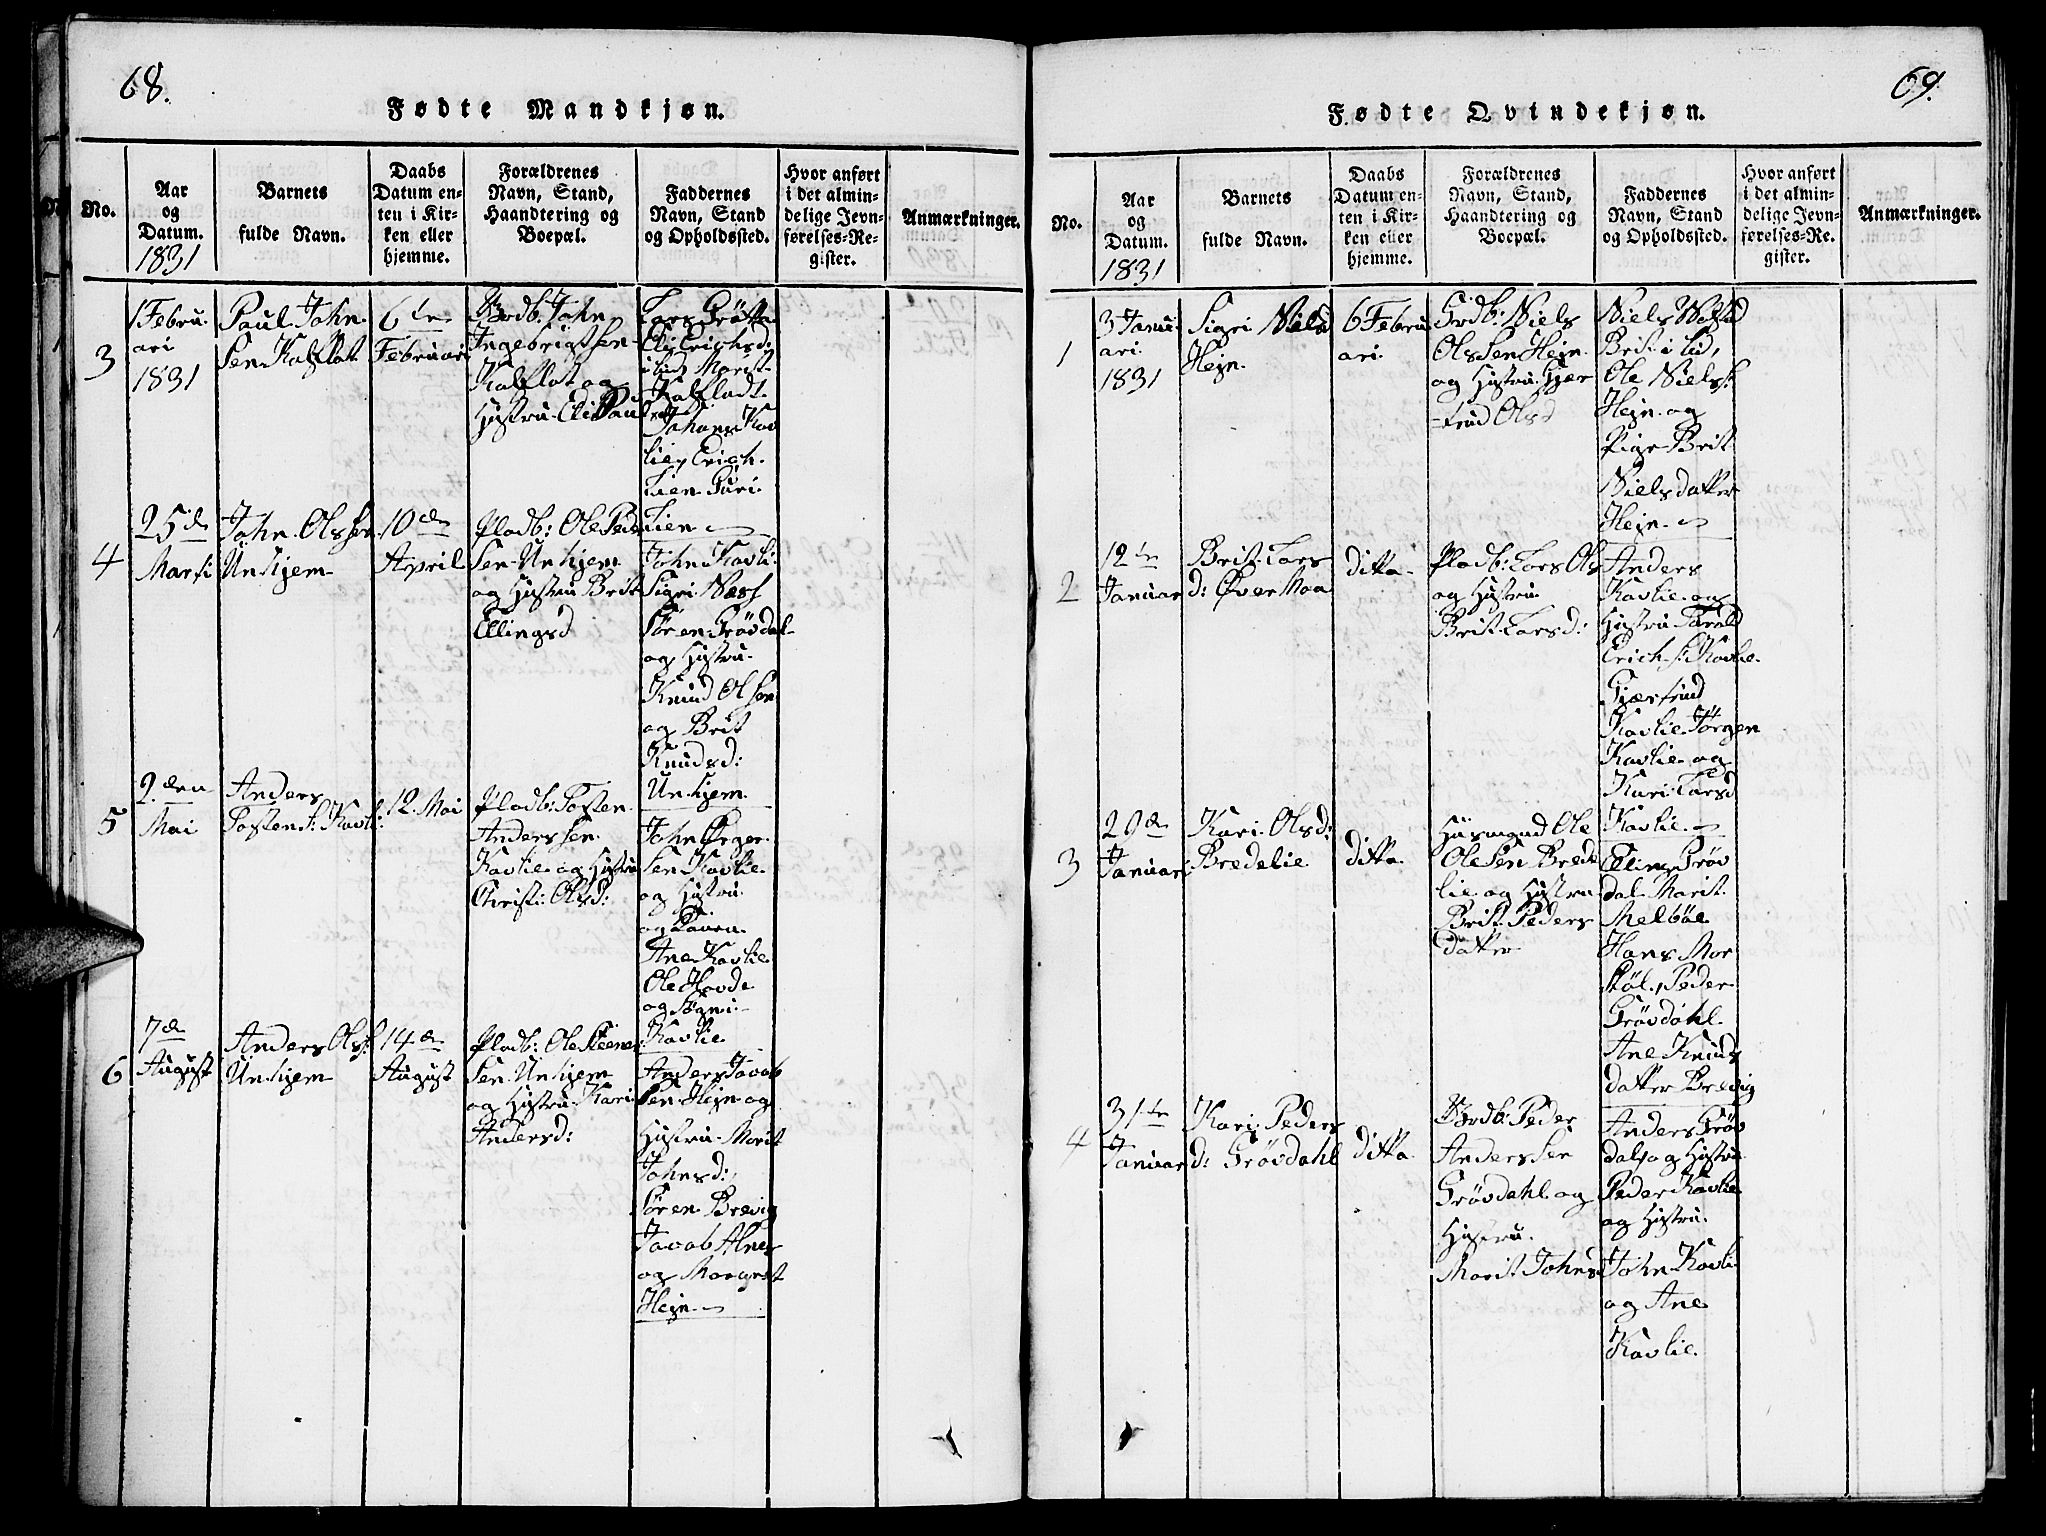 68.
Fødte Mandkjøn.
No.
Aar
og
Datum.
1831
Barnets
fulde Navn.
Daabs
Datum en-
ten i Kir-
ken eller
hjemme.
Forældrenes
Navn, Stand,
Haandtering og
Boepæl.
Faddernes
Navn, Stand
og Opholdssted.
Hvor anført
i det almin-
delige Jevn-
førelses-Re-
gister.
Anmærkninger.
3
1 Febru
ari
1831
Paul John
sen Kalflot
6te
Februari
Brdb: John
Ingebrigtsen
Kalflot og
Hustru Eli Paul
Lars Grøtta
Eli Erichsd:
i Lid, Marit
Kalfladt
Johans Kav
lie, Erich
Lien Guri
Lien
4
25de
Marti
John Olssen
Unhjem
10de
April
Pladb: Ole Peder
sen Unhjem
og Hustru Brit
Ellingsd
John Kavli
Sigri Næss
Søren Grøvdal
og Hustru
Knud Olsen
og Brit
Knudsd:
Unhjem
5
2den
Mai
Anders
Tostens: Kavli:
12. Mai
Pladb: Tosten
Anderssen
Kavlie og Hustru
Christi: Olsd:
John Ørger
sen Kavlie
og Hustru
og
Ane Kavlie
Ole Hovde
og Søgni
Kavlie
6
7de
August
Anders Ols:
Unhjem
14de
August
Pladb: Ole Steener
sen Unhjem
og Hustru Kari
Andersd:
Anders Jacob
sen Hejn og
Hustru Marit
Johnsd:
Søren Brevig
Jacob Alnes
og Margret
Hejn
69.
Fødte Qvindekjøn.
No.
Aar
og
Datum.
1831
Barnets
fulde Navn.
Daabs
Datum en-
ten i Kir-
ken eller
hjemme.
Forældrenes
Navn, Stand,
Haandtering og
Boepæl.
Faddernes
Navn, Stand
og Opholdssted.
Hvor anført
i det almin-
delige Jevn-
førelses-Re-
gister.
Anmærkninger.
1
3 Janu
ari
1831
Sigri Nielsd
Hejn
6 Febru
ari
Grdb: Niels
Olssen Hejn
og Hustru Gjer
-trud Olsd
Niels
Brit i Lid,
Ole Niels:
Hejn og
Pige Brit
Nielsdatter
Hejn
2
12te
Januar
Brit Lars
d: Øver Moa
ditta
Pladb: Lars Ols
og Hustru
Brit Larsd:
Anders
Kavlie og
Hustru Tarald
Erichs: Kavlie
Gjærtrud
Kavlie Jørgen
Kavlie og
Kari Larsd
Kavlie
3
29de
Januari
Kari Olsd:
Bredelie
ditta
Huusmand Ole
Olesen Brede
lie og Hustru
Brit Peders
datter
Elling Grøv
dal Marit
Melbøe
Hans Mor
støl, Peder
Grøvdahl
Ane Knuds
datter Brevig
4
31te
Januar
Kari Peders
d: Grøvdahl
ditta
Brdb: Peder
Anderssen
Grøvdahl og
Hustru
Marit Johns
Anders Grøv
dal og Hustru
Peder Kavlie
og Hustru
John Kavli
og Ane
Kavlie.